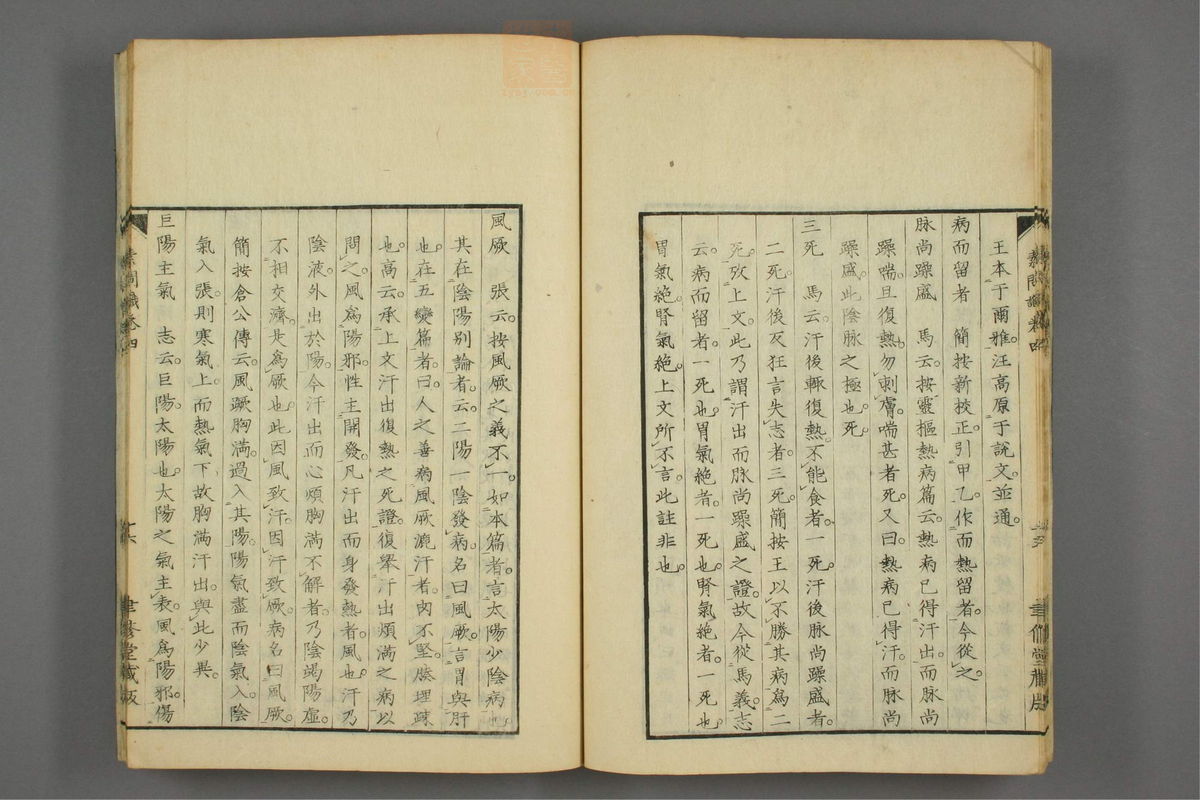 王本于爾雅。汪高原于說文。並通。
病而留者　簡按新挍正。引甲乙。作而熱留者。今從之。
脉尚躁盛　馬云。按靈樞熱病篇云。熱病已得汗出。而脉尚
躁喘。且復熱。勿刺膚。喘甚者死。又曰。熱病已得汗。而脉尚
躁盛。此陰脉之極也。死。
三死　馬云。汗後輒復熱。不能食者。一死。汗後脉尚躁盛者。
二死。汗後反狂言失志者。三死。簡按王以不勝其病爲二
死。攷上文。此乃謂汗出而脉尚躁盛之證。故今從馬義。志
云。病而留者。一死也。胃氣絶者。一死也。腎氣絶者。一死也。
胃氣絶。腎氣絶。上文所不言。此註非也。
風厥　張云。按風厥之義不一。如本篇者。言太陽少陰病也。
其在陰陽別論者。云二陽一陰發病。名曰風厥。言胃與肝
也。在五變篇者。曰人之善病風厥漉汗者。肉不堅。腠理疎
也。高云。承上文汗出復熱之死證。復舉汗出煩滿之病以
問之。風爲陽邪。性主開發。凡汗出而身發熱者。風也。汗乃
陰液。外出於陽。今汗出而心煩胸滿不解者。乃陰竭陽虛。
不相交濟。是爲厥也。此因風致汗。因汗致厥。病名曰風厥。
簡按倉公傳云。風蹶胸滿。過入其陽。陽氣盡而陰氣入。陰
氣入張。則寒氣上。而熱氣下。故胸滿汗出。與此少異。
巨陽主氣　志云。巨陽。太陽也。太陽之氣主表。風爲陽邪。傷
素問識卷四
聿修堂藏版